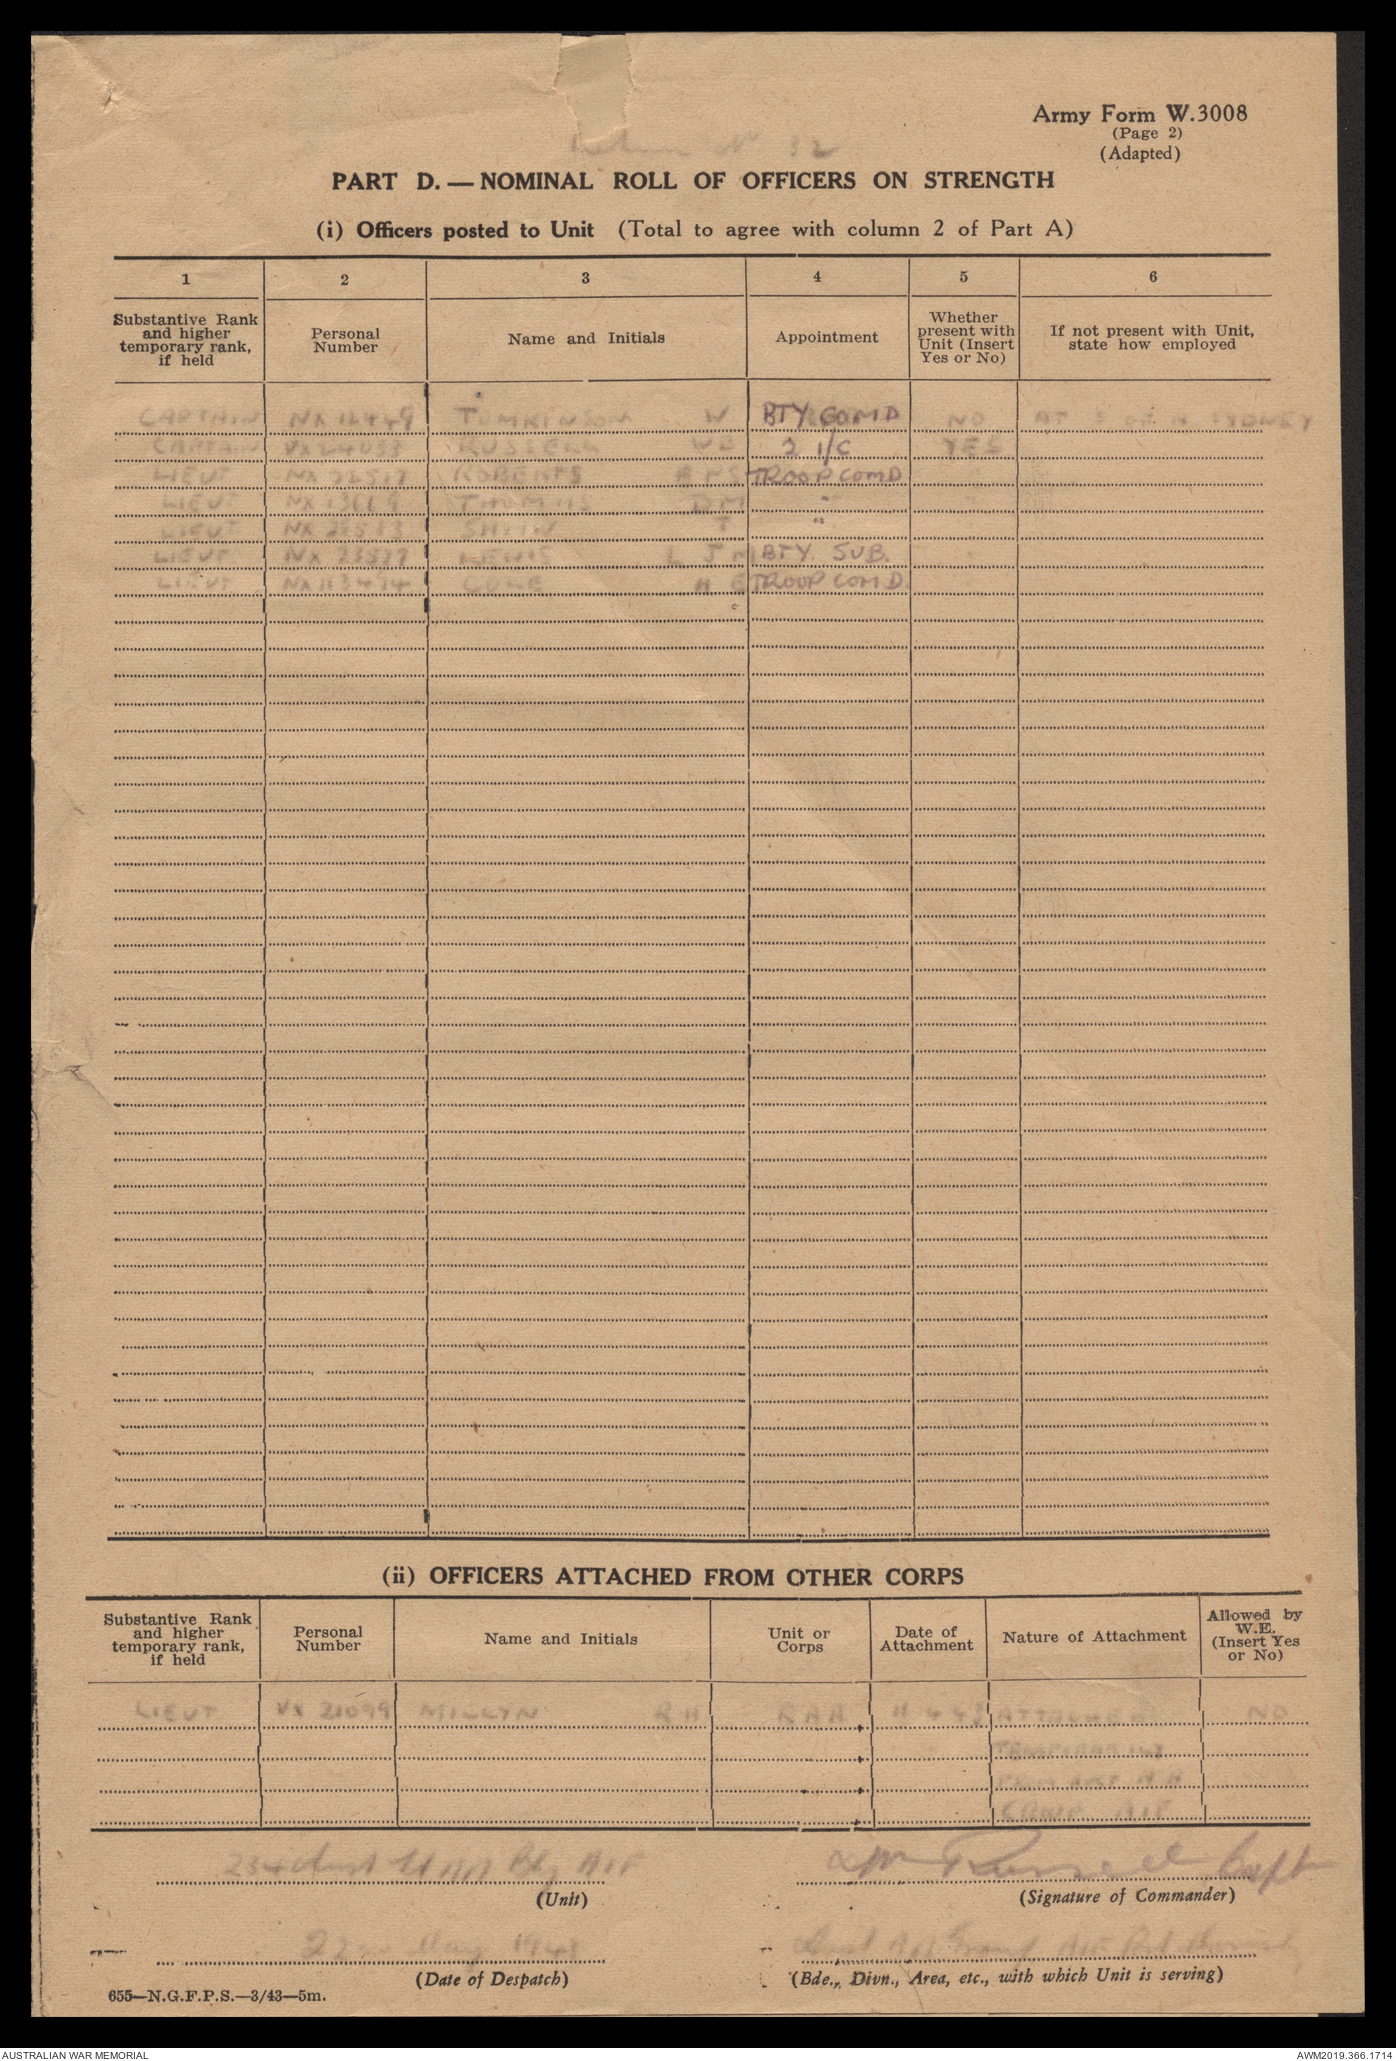 Army Form W.3008
(Page 2)
(Adapted)
32
PART D.—NOMINAL ROLL OF OFFICERS ON STRENGTH
(i) Officers posted to Unit (Total to agree with column 2 of Part A)
1 2 3 4 5 6
Substantive Rank and higher temporary rank, if held
Personal Number
Name and Initials
Appointment
Whether present with Unit (Insert Yes or No)
If not present with Unit, state how employed
CAPTAIN TOMKINSON W BTY COMD NO SYDNEY
CAPTAIN RUSSELL 2 I/C YES
LIEUT ROBERTS TROOP COMD
LIEUT THOMAS DM "
LIEUT T "
LIEUT LEWIS BTY. SUB.
LIEUT TROOP COMD.
(ii) OFFICERS ATTACHED FROM OTHER CORPS
Substantive Rank and higher temporary rank, if held
Personal Number
Name and Initials
Unit or Corps
Date of Attachment
Nature of Attachment
Allowed by W.E. (Insert Yes or No)
LIEUT MILLYN RH RAA ATTACHED NO
TEMPORARILY
CAMP AIF
Aust Bty AIF Russell Capt
(Unit) (Signature of Commander)
22 May 1943
(Date of Despatch) (Bde., Divn., Area, etc., with which Unit is serving)
655—N.G.F.P.S.—3/43—5m.
AUSTRALIAN WAR MEMORIAL AWM2019.366.1714